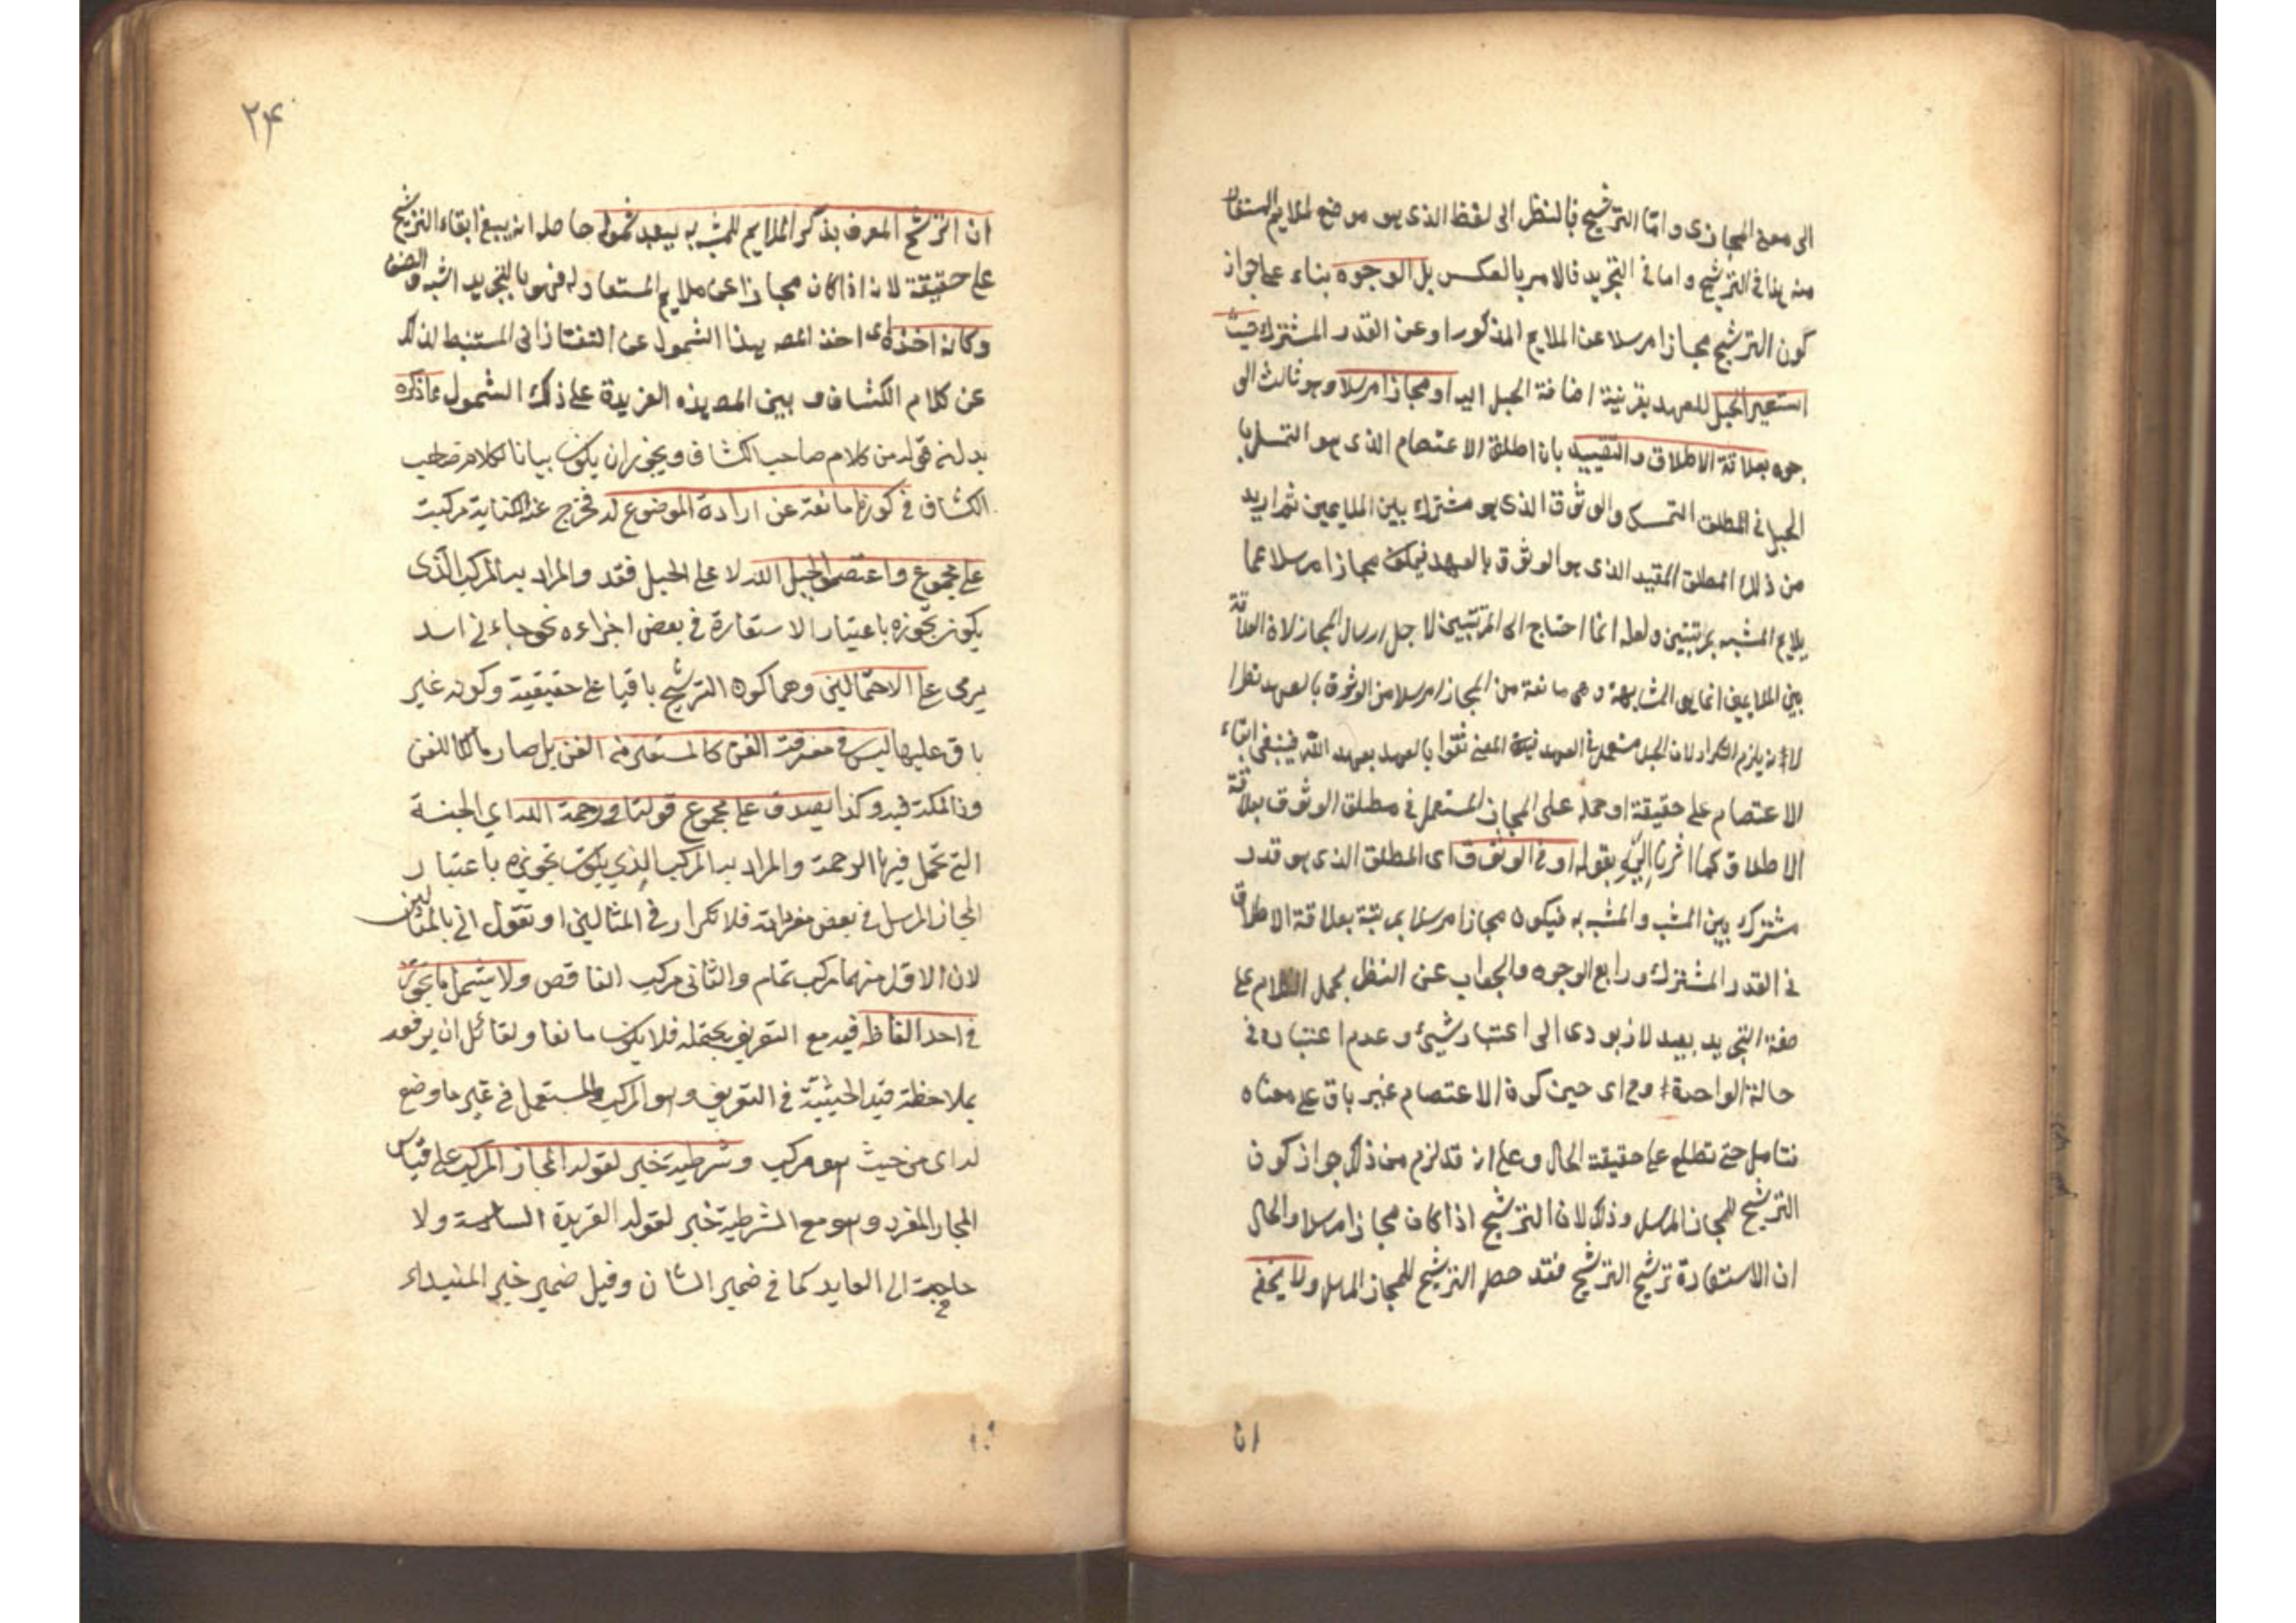 الى معنى المجازى واما الترشيح فبالنظر الى لفظ الذى هو موضع لملايم المستعار
منه هذا فى الترشيح واما فى التجريد فالامر بالعكس بل الوجوه بناء على جواز
كون الترشيح مجازا مرسلا عن الملايم المذكور او عن القدر المشترك حيث
استعير الحبل للعهد بقرينة اضافة الحبل اليه او مجازا مرسلا وهو ثالث الو
جوه بعلاقة الاطلاق والتقييد بان اطلق الاعتصام الذى هو التمسك با
الحبل فى المطلق التمسك والوثوق الذى هو مشترك بين الملايمين ثم اريد
من ذلك المطلق المقيد الذى هو الوثوق بالعهد فيكون مجازا مرسلا عما
يلايم المشبه بمرتبتين ولعله انما احتاج الى المرتبتين لاجل ارسال المجاز لان العلاقة
بين الملايمين انما هى المشابهة وهى مانعة من المجاز المرسل من الوثوق بالعهد نظرا
لانه يلزم التكرار لان الحبل مستعمل فى العهد المعنى ثقوا بالعهد بعهد الله فينبغى ابقاء
الاعتصام على حقيقة او حمله على المجاز المستعمل فى مطلق الوثوق بعلاقة
الاطلاق كما اشرنا اليه بقوله او فى الوثوق اى المطلق الذى هو قدر
مشترك بين المشبه والمشبه به فيكون مجازا مرسلا بمرتبة بعلاقة الاطلاق
فى القدر المشترك ورابع الوجوه والجواب عن النظر بحمل الكلام على
صفة التجريد بعيد لانه يودى الى اعتبار شيئ وعدم اعتباره فى
حالة الواحدة وح اى حين كون الاعتصام غير باق على معناه
تتامل حتى تطلع على حقيقة الحال وعلى انه قد لزم من ذلك جواز كون
الترشيح للمجاز المرسل وذلك لان الترشيح اذا كان مجازا مرسلا والحال
ان الاستعارة ترشيح الترشيح فقد حصل الترشيح للمجاز المرسل ولا يخفى
ان
٢٤
ان الترشيح المعرف بذكر الملايم للمشبه به يبعد شموله حاصله انه ينبغى ابقاء الترشيح
على حقيقة لانه اذا كان مجازا عن ملايم المستعار له فهو بالتجريد اشبه
وكانه اخذه اى اخذ المصـ هذا الشمول عن التفتازانى المستنبط لذلك
عن كلام الكشاف وبين المصـ هذه الفريدة على ذلك الشمول ما ذكره
بدلنه قوله من كلام صاحب الكشاف ويجوز ان يكون بيانا لكلام صاحب
الكشاف فى كونها مانعة عن ارادة الموضوع له فخرج عنه الكناية مركبة
على مجموع واعتصموا بحبل الله لا على الحبل فقد والمراد به المركب الذى
يكون تجوزه باعتبار الاستعارة فى بعض اجزاءه نحو جاءنى اسد
يرمى على الاحتمالين وهما كون الترشيح باقيا على حقيقية وكونه غير
باق عليها ليس فى معرفة الفن كالمستعير منه الفن بل صار مالكا للفن
وذا ملكة فيه وكذا يصدق على مجموع قولنا فى رحمة الله اي الجنة
التى تحل فيها الرحمة والمراد به المركب الذي يكون تجوزه باعتبار
المجاز المرسل فى بعض مفرداته فلا تكرار فى المثالين او نقول اتى بالمثالين
لان الاول منهما مركب تمام والثانى مركب الناقص ولا يشمل ما تجوز
فى احد الفاظه فيه مع التعريف يحتمله فلا يكون مانعا ولقائل ان يرفعه
بملاحظة قيد الحيثية فى التعريف وهو المركب المستعمل فى غير ما وضع
له اى من حيث هو مركب وشرطية خبر لقوله المجاز المركب على قياس
المجاز المفرد وهو مع الشرطية خبر لقوله الفريدة السادسة ولا
حاجة الى العايد كما فى ضمير الشان وقيل ضمير خبر المبتداء